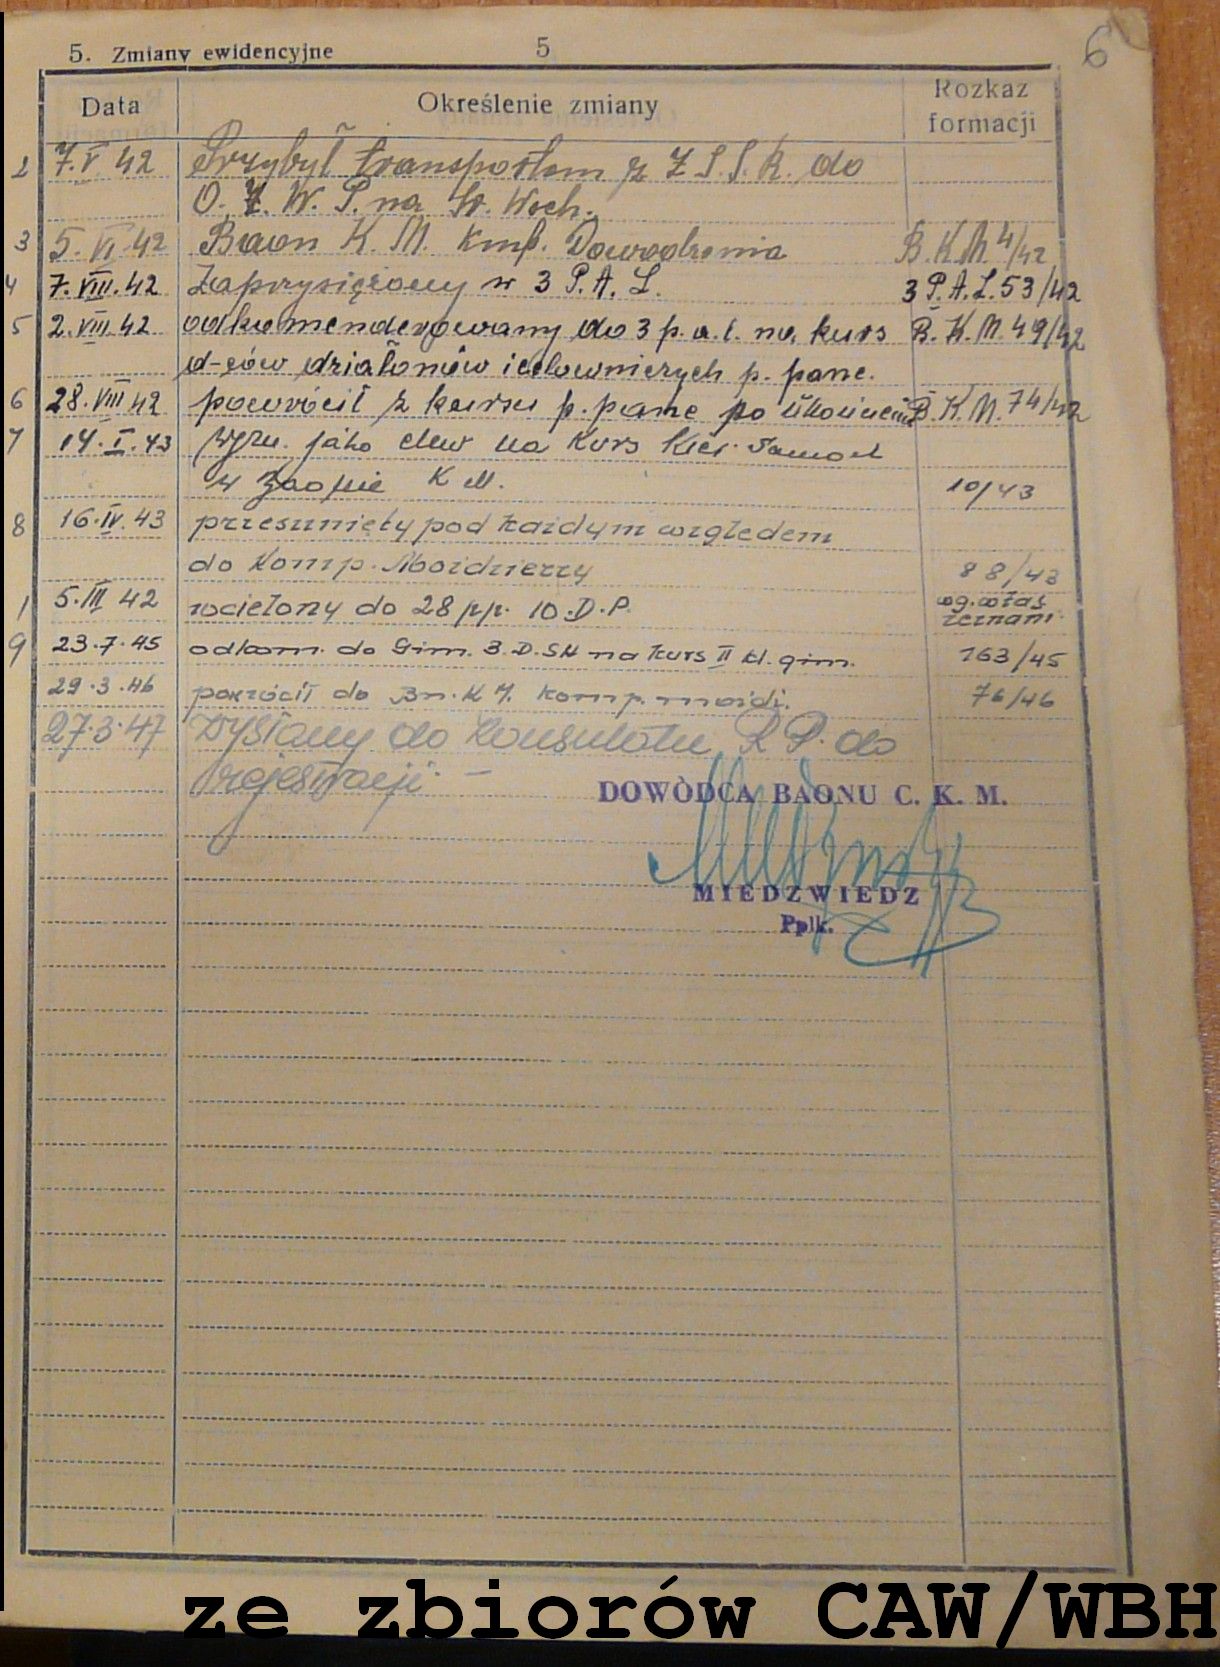 5. Zmiany ewidencyjne 5 6
Data Określenie zmiany Rozkaz formacji
2 7.V. 42 Przybył transportem z Z.S.S.R. do
O. Z. W. P. na Śr. Wsch.
3 5.VI.42 Baon K. M. kmp. Dowodzenia B.K.M. 4/42
4 7.VIII.42 Zaprzysiężony w 3 P.A.L. 3 P.A.L. 53/42
5 2.VIII.42 odkomenderowany do 3 p.a.l. na kurs B.K.M. 49/42
d-ców działonów i celowniczych p. panc.
6 28.VIII 42 powrócił z kursu p. panc po ukończeniu B.K.M. 74/42
7 14.I.43 jako elew na kurs Kier. Samoch
w K M. 10/43
8 16.IV.43 przesunięty pod każdym względem
do Komp. Moździerzy 88/43
1 5.III 42 wcielony do 28 p.p. 10.D.P. wg. włas
zeznani
9 23.7.45 odkom. do Gim. 3.D.SK na kurs II kl. gim. 163/45
29.3.46 powrócił do Bn. K M. komp. moźdz. 76/46
27.3.47 Wysłany do Konsulatu R.P. do
rejestracji. –
DOWÓDCA BAONU C. K. M.
MIEDZWIEDZ
Pplk.
ze zbiorów CAW/WBH